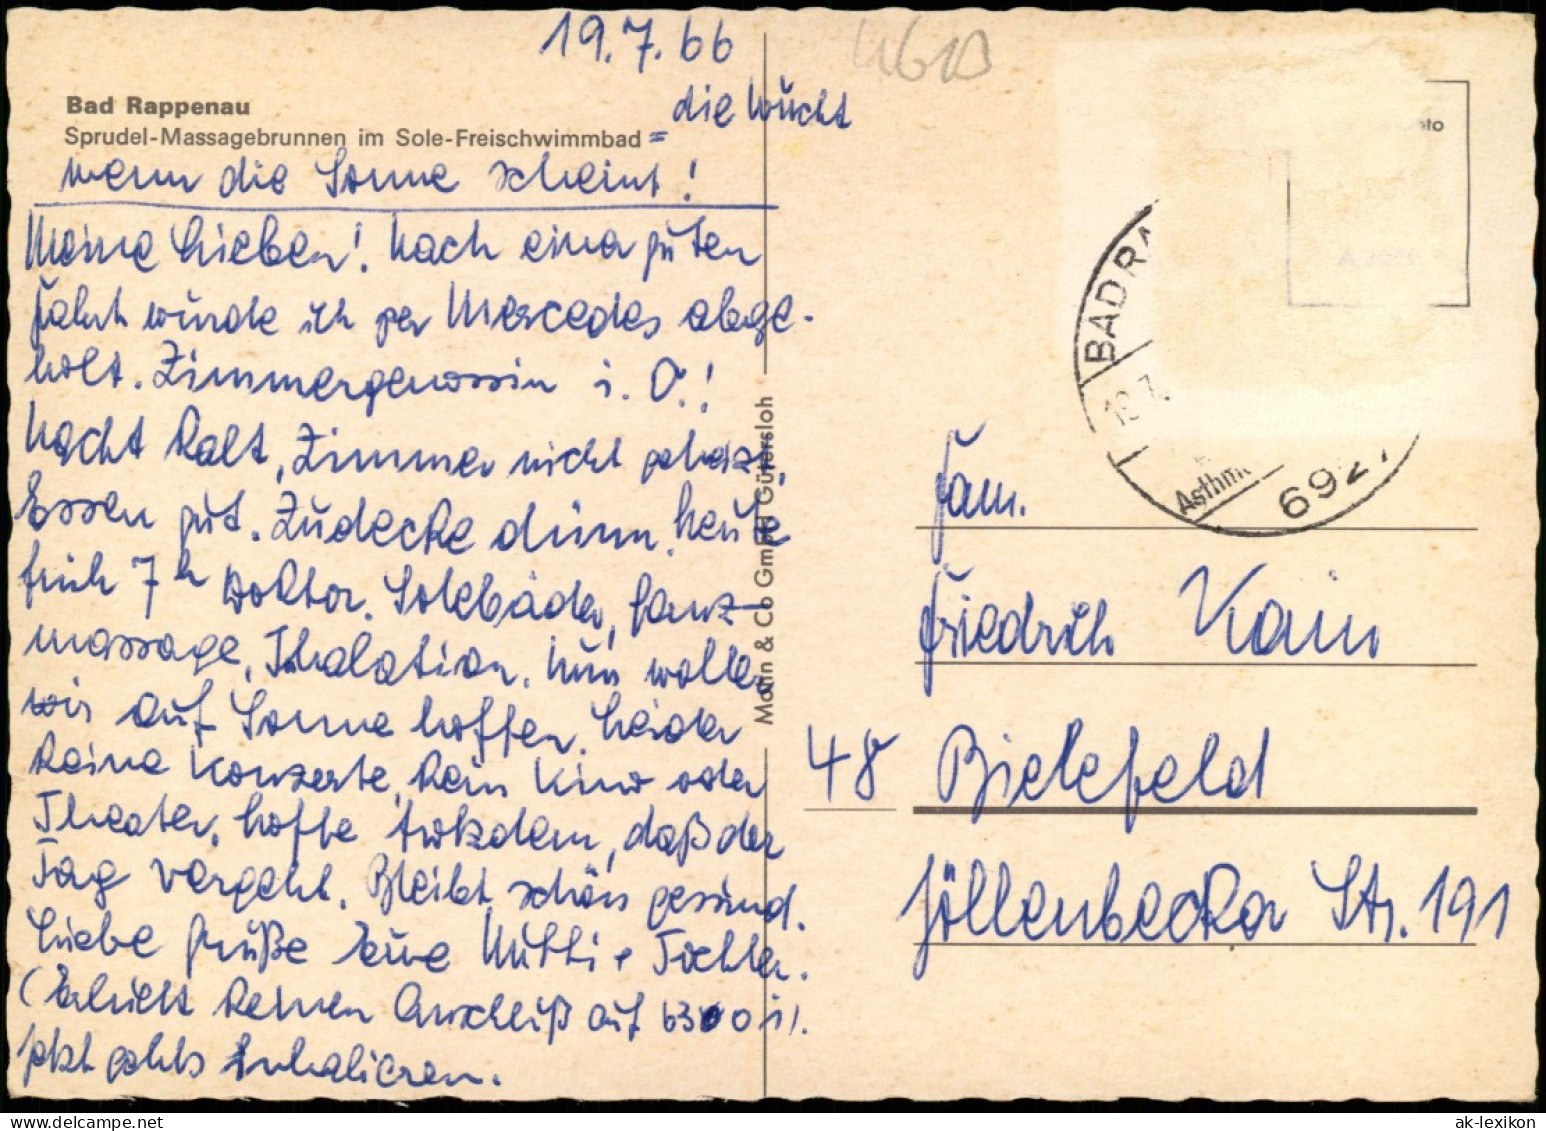 19.7.66
Bad Rappenau
Sprudel-Massagebrunnen im Sole-Freischwimmbad = die Wucht
wenn die Sonne scheint!
Meine Lieben! Nach einer guten
Fahrt wurde ich per Mercedes abge-
holt. Zimmergenossin i. O.!
Nacht kalt, Zimmer nicht geheizt,
Essen gut. Zudecke dünn. Heute
früh 7h Doktor. Solebäder, Ganz-
massage, Inhalation. Nun wollen
wir auf Sonne hoffen. Leider
keine Konzerte, kein Kino oder
Theater, hoffe trotzdem, daß der
Tag vergeht. Bleibt schön gesund.
Liebe Grüße eure Mutti + Tochter.
(Erhielt keinen Anschluß auf
jetzt gehts Inhalieren.
Mohn & Co GmbH Gütersloh
BAD RA
6927
Asthm
Fam.
Friedrich Kain
48 Bielefeld
Jöllenbecker Str. 191
ak-lexikon